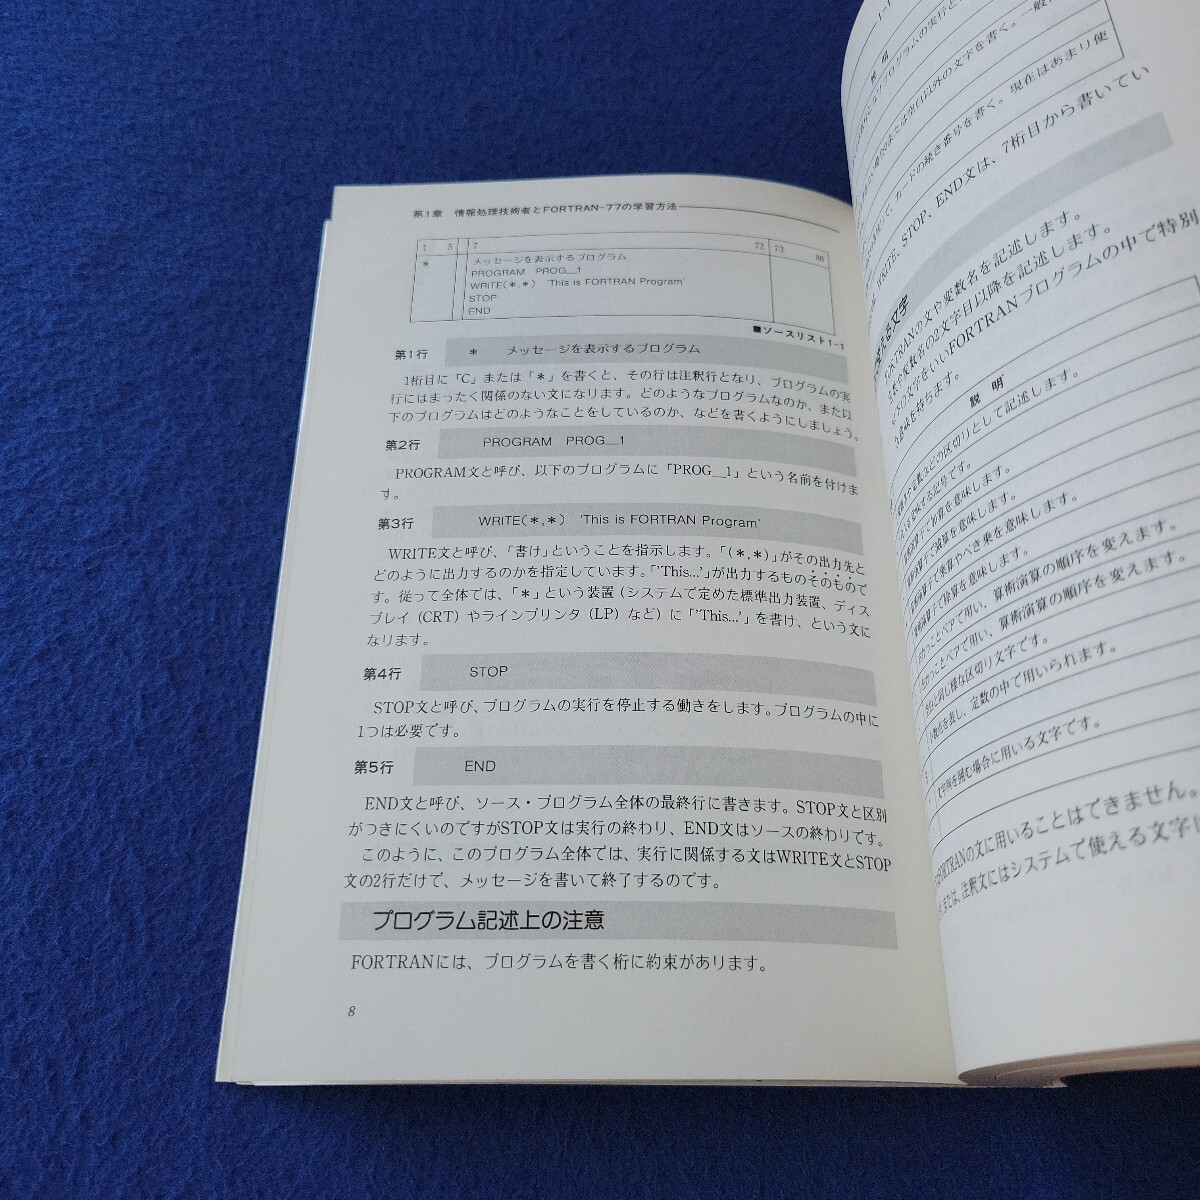 第1章 情報処理技術者とFORTRAN-77の学習方法
1 5 7 72 73 80
* メッセージを表示するプログラム
PROGRAM PROG_1
WRITE(*,*) 'This is FORTRAN Program'
STOP
END
■ソースリスト1-1
第1行 * メッセージを表示するプログラム
1桁目に「C」または「*」を書くと、その行は注釈行となり、プログラムの実
行にはまったく関係のない文になります。どのようなプログラムなのか、また以
下のプログラムはどのようなことをしているのか、などを書くようにしましょう。
第2行 PROGRAM PROG_1
PROGRAM文と呼び、以下のプログラムに「PROG_1」という名前を付けま
す。
第3行 WRITE(*,*) 'This is FORTRAN Program'
WRITE文と呼び、「書け」ということを指示します。「(*,*)」がその出力先と
どのように出力するのかを指定しています。「'This...'」が出力するものそのもので
す。従って全体では、「*」という装置(システムで定めた標準出力装置、ディス
プレイ(CRT)やラインプリンタ(LP)など)に「'This...'」を書け、という文に
なります。
第4行 STOP
STOP文と呼び、プログラムの実行を停止する働きをします。プログラムの中に
1つは必要です。
第5行 END
END文と呼び、ソース・プログラム全体の最終行に書きます。STOP文と区別
がつきにくいのですがSTOP文は実行の終わり、END文はソースの終わりです。
このように、このプログラム全体では、実行に関係する文はWRITE文とSTOP
文の2行だけで、メッセージを書いて終了するのです。
プログラム記述上の注意
FORTRANには、プログラムを書く桁に約束があります。
8
プログラムの実行と
または空白以外の文字を書く。一般
カードの続き番号を書く。現在はあまり使
WRITE、STOP、END文は、7桁目から書いてい
える文字
FORTRANの文や変数名を記述します。
や変数名の2文字目以降を記述します。
の文字をいいFORTRANプログラムの中で特別
意味を持ちます。
説明
などの区切りとして記述します。
する記号です。
で加算を意味します。
で減算を意味します。
で乗算やべき乗を意味します。
で除算を意味します。
かっことペアで用い、算術演算の順序を変えます。
かっことペアで用い、算術演算の順序を変えます。
と同じ様な区切り文字です。
小数点を表し、定数の中で用いられます。
文字列を囲む場合に用いる文字です。
FORTRANの文に用いることはできません。
または、注釈文にはシステムで使える文字に